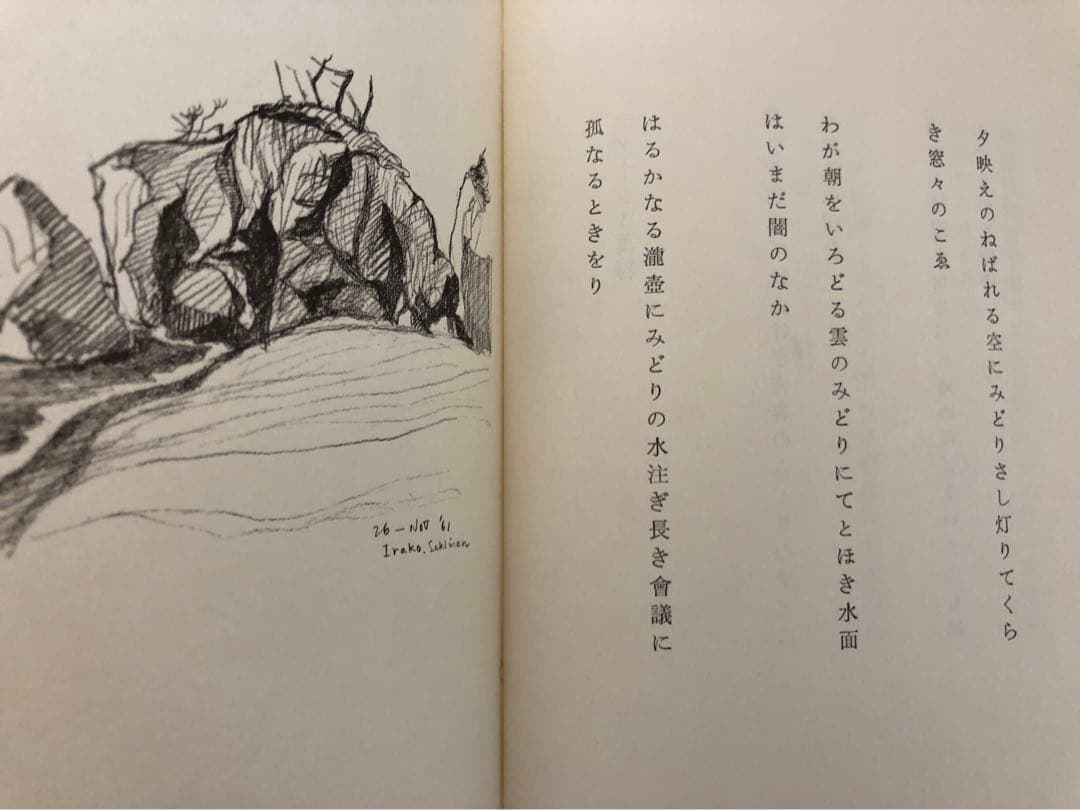 夕映えのねばれる空にみどりさし灯りてくら
き窓々のこゑ
わが朝をいろどる雲のみどりにてとほき水面
はいまだ闇のなか
はるかなる瀧壺にみどりの水注ぎ長き會議に
孤なるときをり
26-Nov '61
Irako.